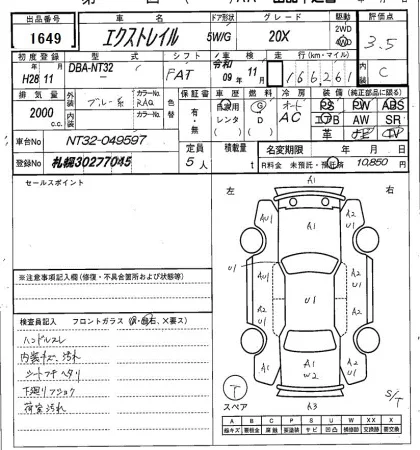 出品番号 車名 ドア形状 グレード 駆動 評価点
1649 エクストレイル 5W/G 20X 2WD 4WD 3.5
初度登録 型式 シフト 車検 走行(km・マイル) 内装
H28 11 DBA-NT32 FAT 令和 09年 11月 166,261 C
排気量 外装 カラーNo. 色替 保証書 車歴 燃料 冷房 装備(純正部品に限る)
2000 c.c. ブルー系 RAQ 有・無 自家用 レンタ G D オート AC PS PW ABS
エアB AW SR
革 TV
内装 カラーNo.
車台No NT32-049597 定員 積載量 名変期限 年 月 日
登録No 札幌30277045 5人 t R料金 未預託・預託済 10,850円
セールスポイント
左 右
A1
AU1 A2
U1 A2 U1
U1
A1 A2
A1
W2
A3
S/T
T
スペア
※注意事項記入欄(修復・不具合箇所および状態等)
検査員記入 フロントガラス(A・飛石、X要ス)
ハンドルスレ
内装キズ、汚れ
シートコゲ ヘタリ
下廻りフショク
荷室汚れ
A B C P S U W XX X
線キズ 要板金 腐触 要塗装 サビ 凹凸 補修跡 交換跡 要交換